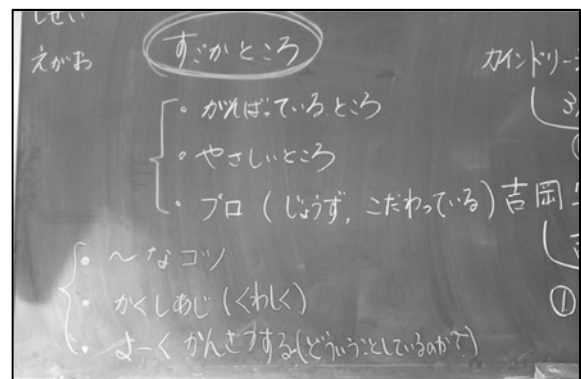 しせい
えがお
すごかところ
・がんばっているところ
・やさしいところ
・プロ(じょうず,こだわっている)
・〜なコツ
・かくしあじ(くわしく)
・よーくかんさつする(どういうことしているのか?)
カインドリー
3
吉岡
①